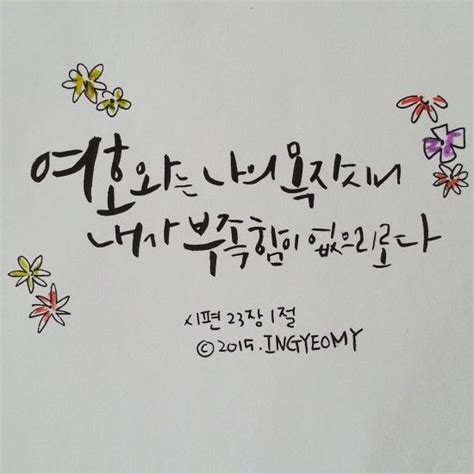 여호와는 나의 목자시니
내가 부족함이 없으리로다
시편 23장 1절
©2015.INGYEOMY